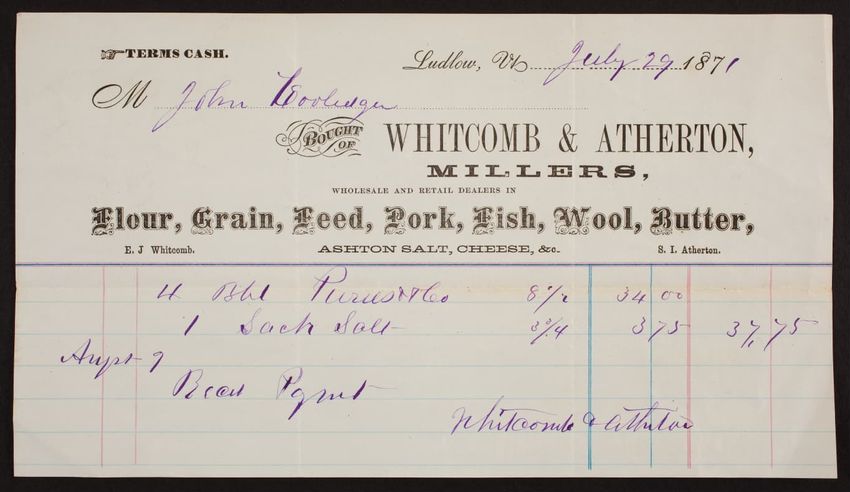 TERMS CASH.
Ludlow, Vt. July 29 1871
M John
BOUGHT OF WHITCOMB & ATHERTON,
MILLERS,
WHOLESALE AND RETAIL DEALERS IN
Flour, Grain, Feed, Pork, Fish, Wool, Butter,
E. J Whitcomb. ASHTON SALT, CHEESE, &c. S. I. Atherton.
4 Bbl 8 1/2 34 00
1 Sack Salt 3 75 37,75
9
Recd Pymt
Whitcomb & Atherton